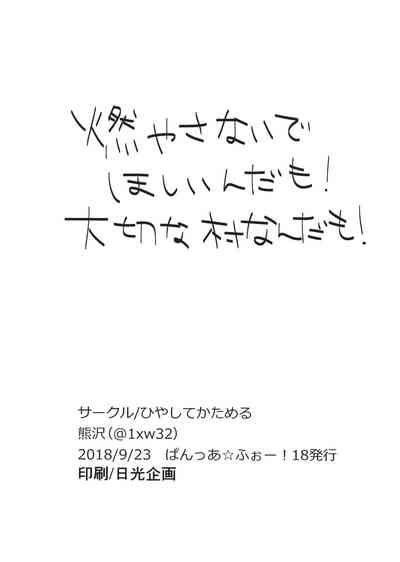 燃やさないで
ほしいんだも!
大切な村なんだも!
サークル/ひやしてかためる
熊沢(@1xw32)
2018/9/23　ぱんっあ☆ふぉー!18発行
印刷/日光企画